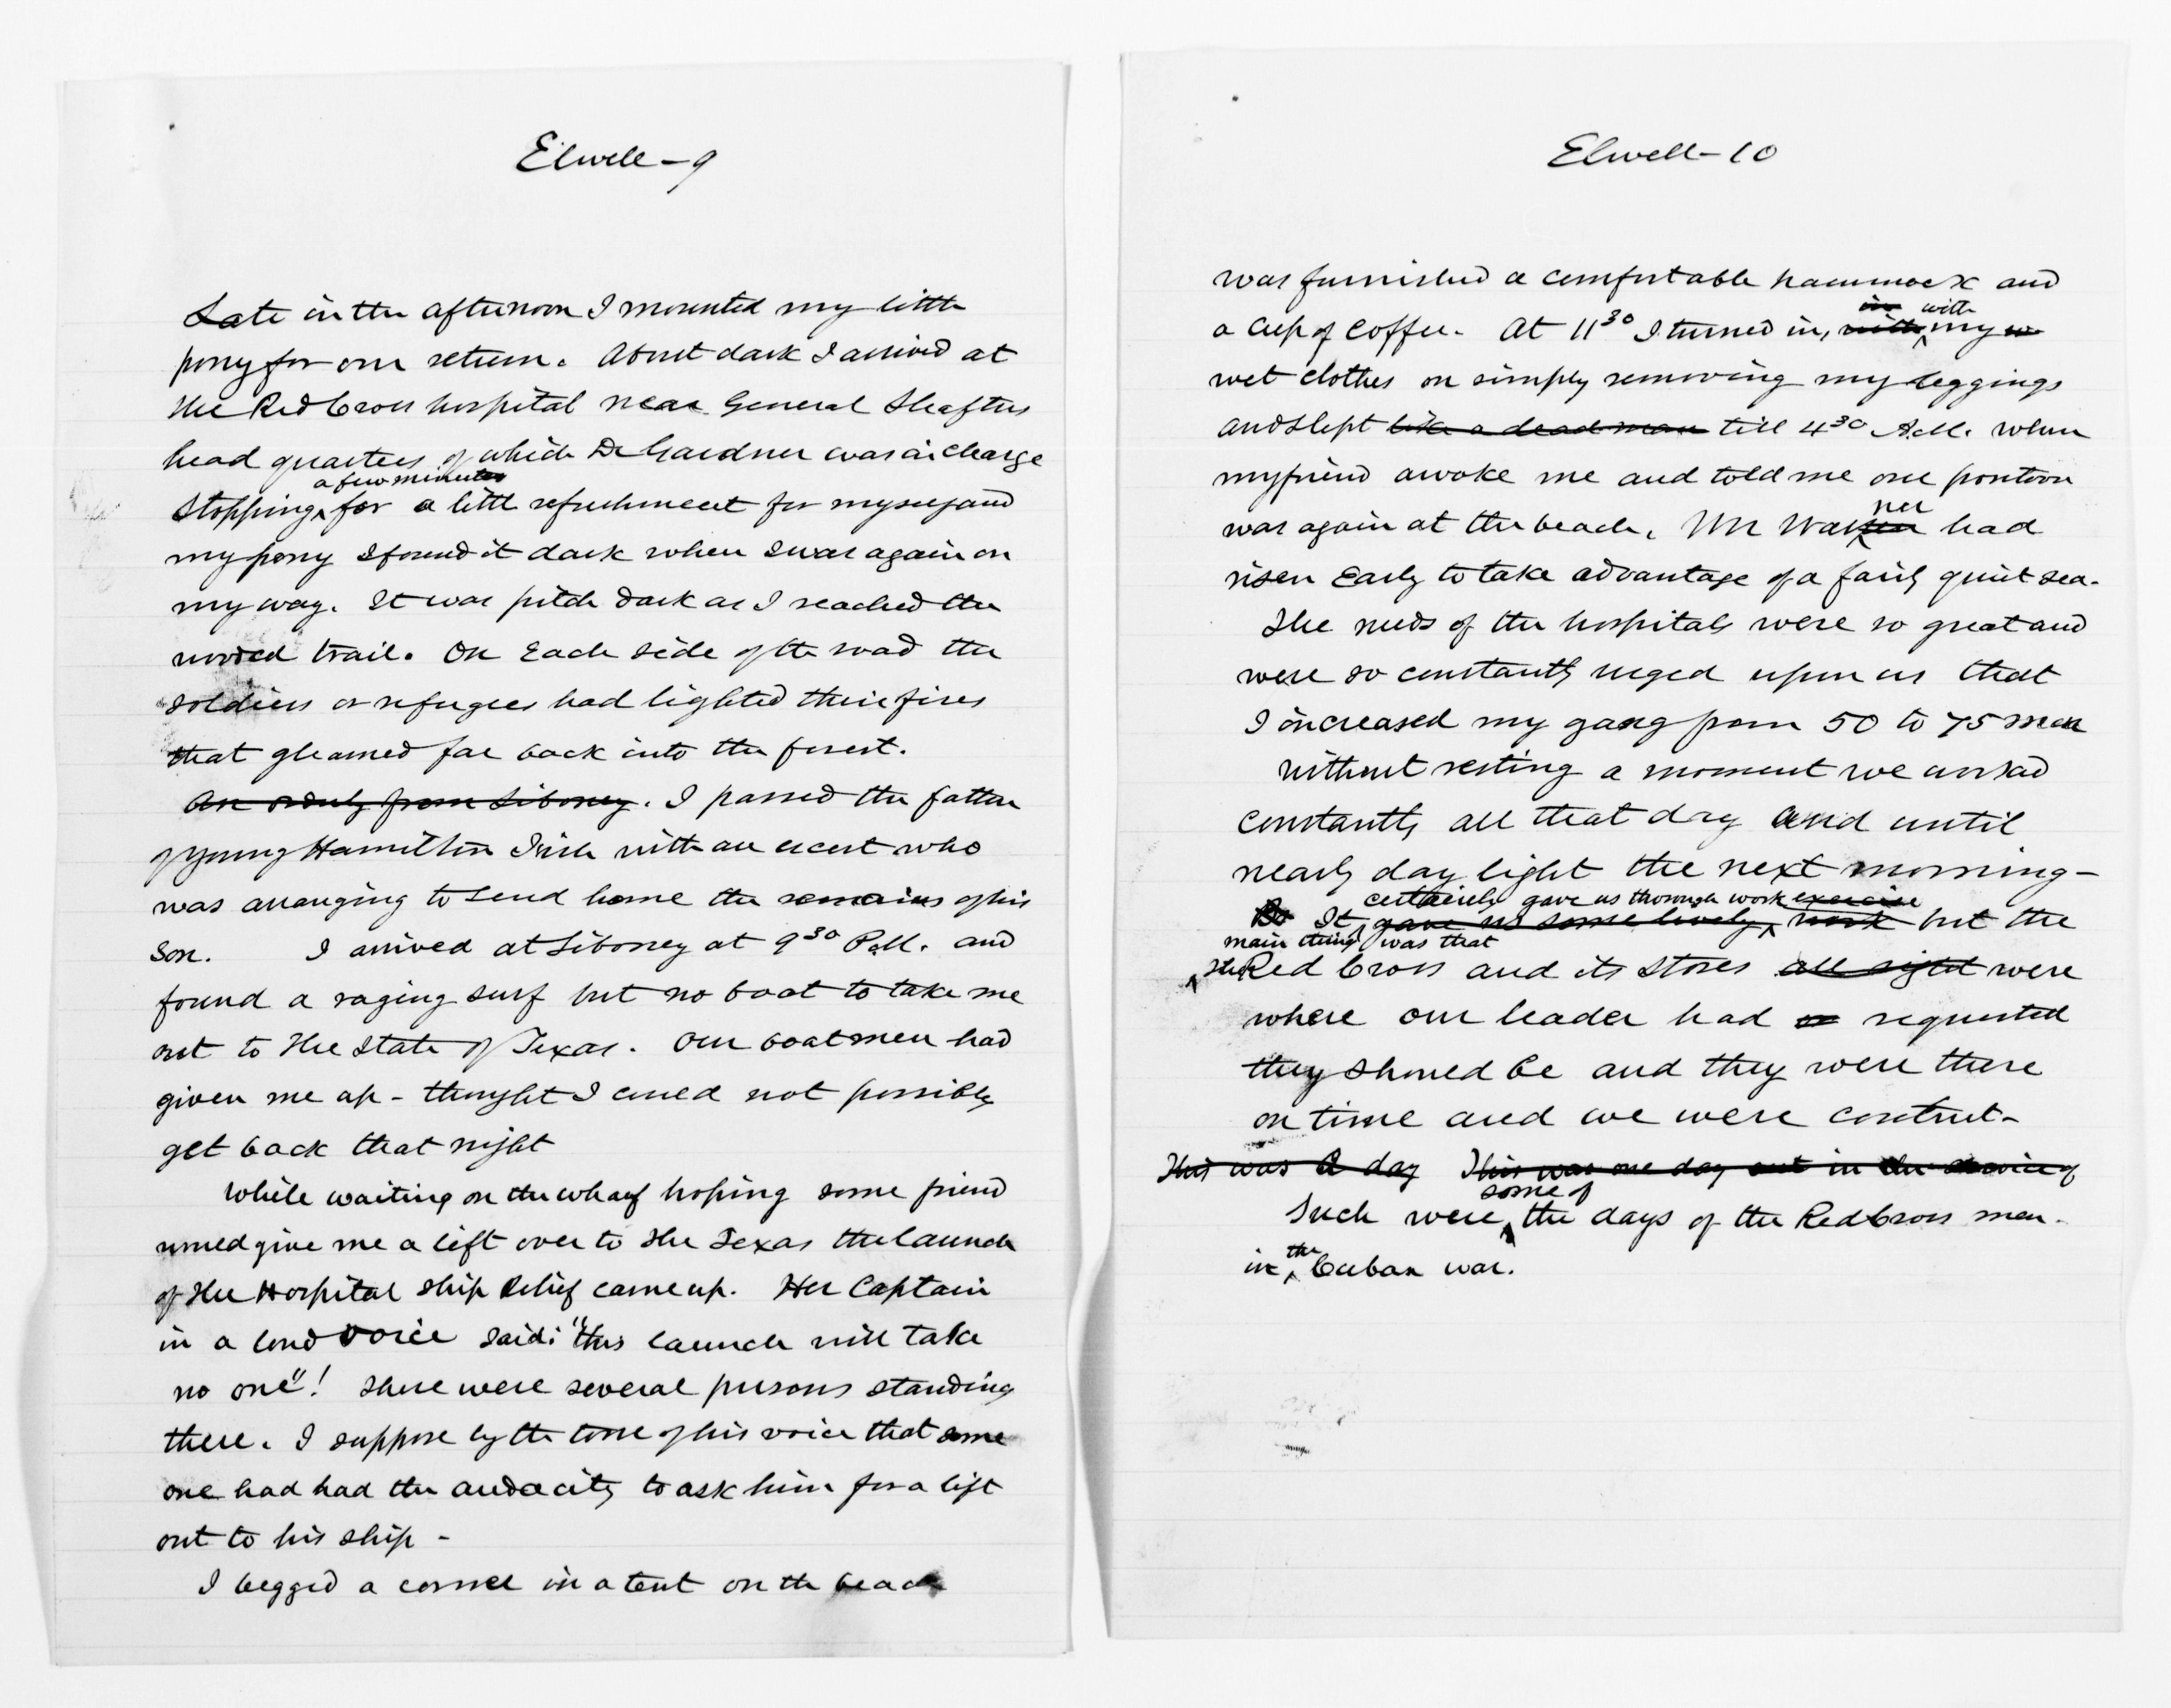 Elwell-9
Late in the afternoon I mounted my little
pony for our return. About dark I arrived at
the Red Cross hospital near General Shafters
head quarters of which Dr Gardner was in charge
a few minutes
Stopping ^ for a little refreshment for myself and
my pony I found it dark when I was again on
my way. It was pitch dark as I reached the
wooded trail. On Each side of the road the
soldiers or refugees had lighted their fires
that gleamed far back into the forest.
An orderly from Siboney. I passed the father
of young Hamilton Fish with an escort who
was arranging to send home the remains of his
Son. I arrived at Siboney at 9 30 P.M. and
found a raging surf but no boat to take me
out to The State of Texas. Our boatmen had
given me up - thought I could not possibly
get back that night
While waiting on the wharf hoping some friend
would give me a lift over to The Texas the launch
of The Hospital Ship Relief came up. Her Captain
in a loud voice said: "This launch will take
no one"! There were several persons standing
there. I suppose by the tone of his voice that some
one had had the audacity to ask him for a lift
out to his ship -
I begged a corner in a tent on the beach
Elwell-10
was furnished a comfortable hammock and
in with
a cup of coffee. At 11 30 I turned in, with ^ my w
wet clothes on simply removing my leggings
and slept like a dead man till 4 30 A.M. when
my friend awoke me and told me our pontoon
ner
was again at the beach. Mr War^ren had
risen Early to take advantage of a fairly quiet sea.
The needs of the hospitals were so great and
were so constantly urged upon us that
I increased my gang from 50 to 75 men
without resting a moment we worked
constantly all that day and until
nearly day light the next morning -
certainly gave us thorough work exercise
But It ^ gave us some lively ^ work but the
main thing was that
^ The Red Cross and its Stores all right were
where our leader had requested
they should be and they were there
on time and we were content -
This was a day This was one day out in the service of
some of
Such were ^ the days of the Red Cross men.
the
in ^ Cuban war.